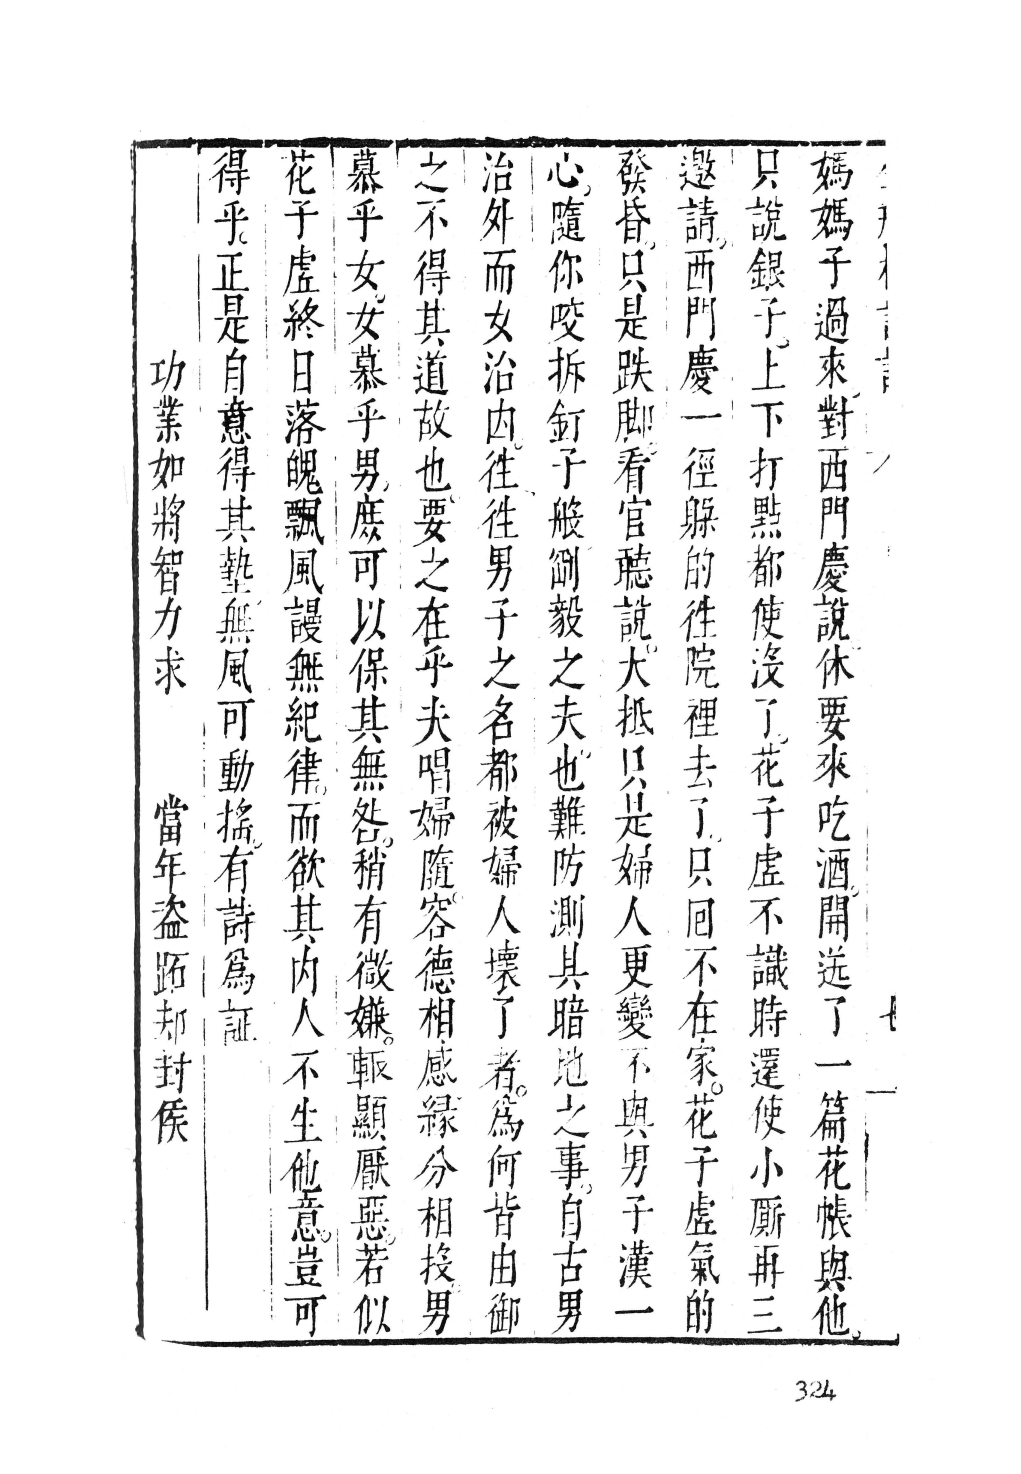 媽媽子過來對西門慶說休要來吃酒。開送了一篇花帳與他。
只說銀子。上下打點都使沒了。花子虛不識時還使小厮再三
邀請。西門慶一徑躲的徃院裡去了。只囘不在家。花子虛氣的
發昏。只是跌脚。看官聽說。大抵只是婦人更變不與男子漢一
心。隨你咬折釘子般剛毅之夫。也難防測其暗地之事。自古男
治外而女治内。徃徃男子之名都被婦人壞了者。爲何皆由御
之不得其道故也。要之在乎夫唱婦隨。容德相感緣分相投。男
慕乎女。女慕乎男。庶可以保其無咎。稍有微嫌。輒顯厭惡。若似
花子虛終日落魄飄風謾無紀律。而欲其内人不生他意。豈可
得乎。正是自意得其墊無風可動搖。有詩爲証
功業如將智力求　當年盗跖却封侯
324